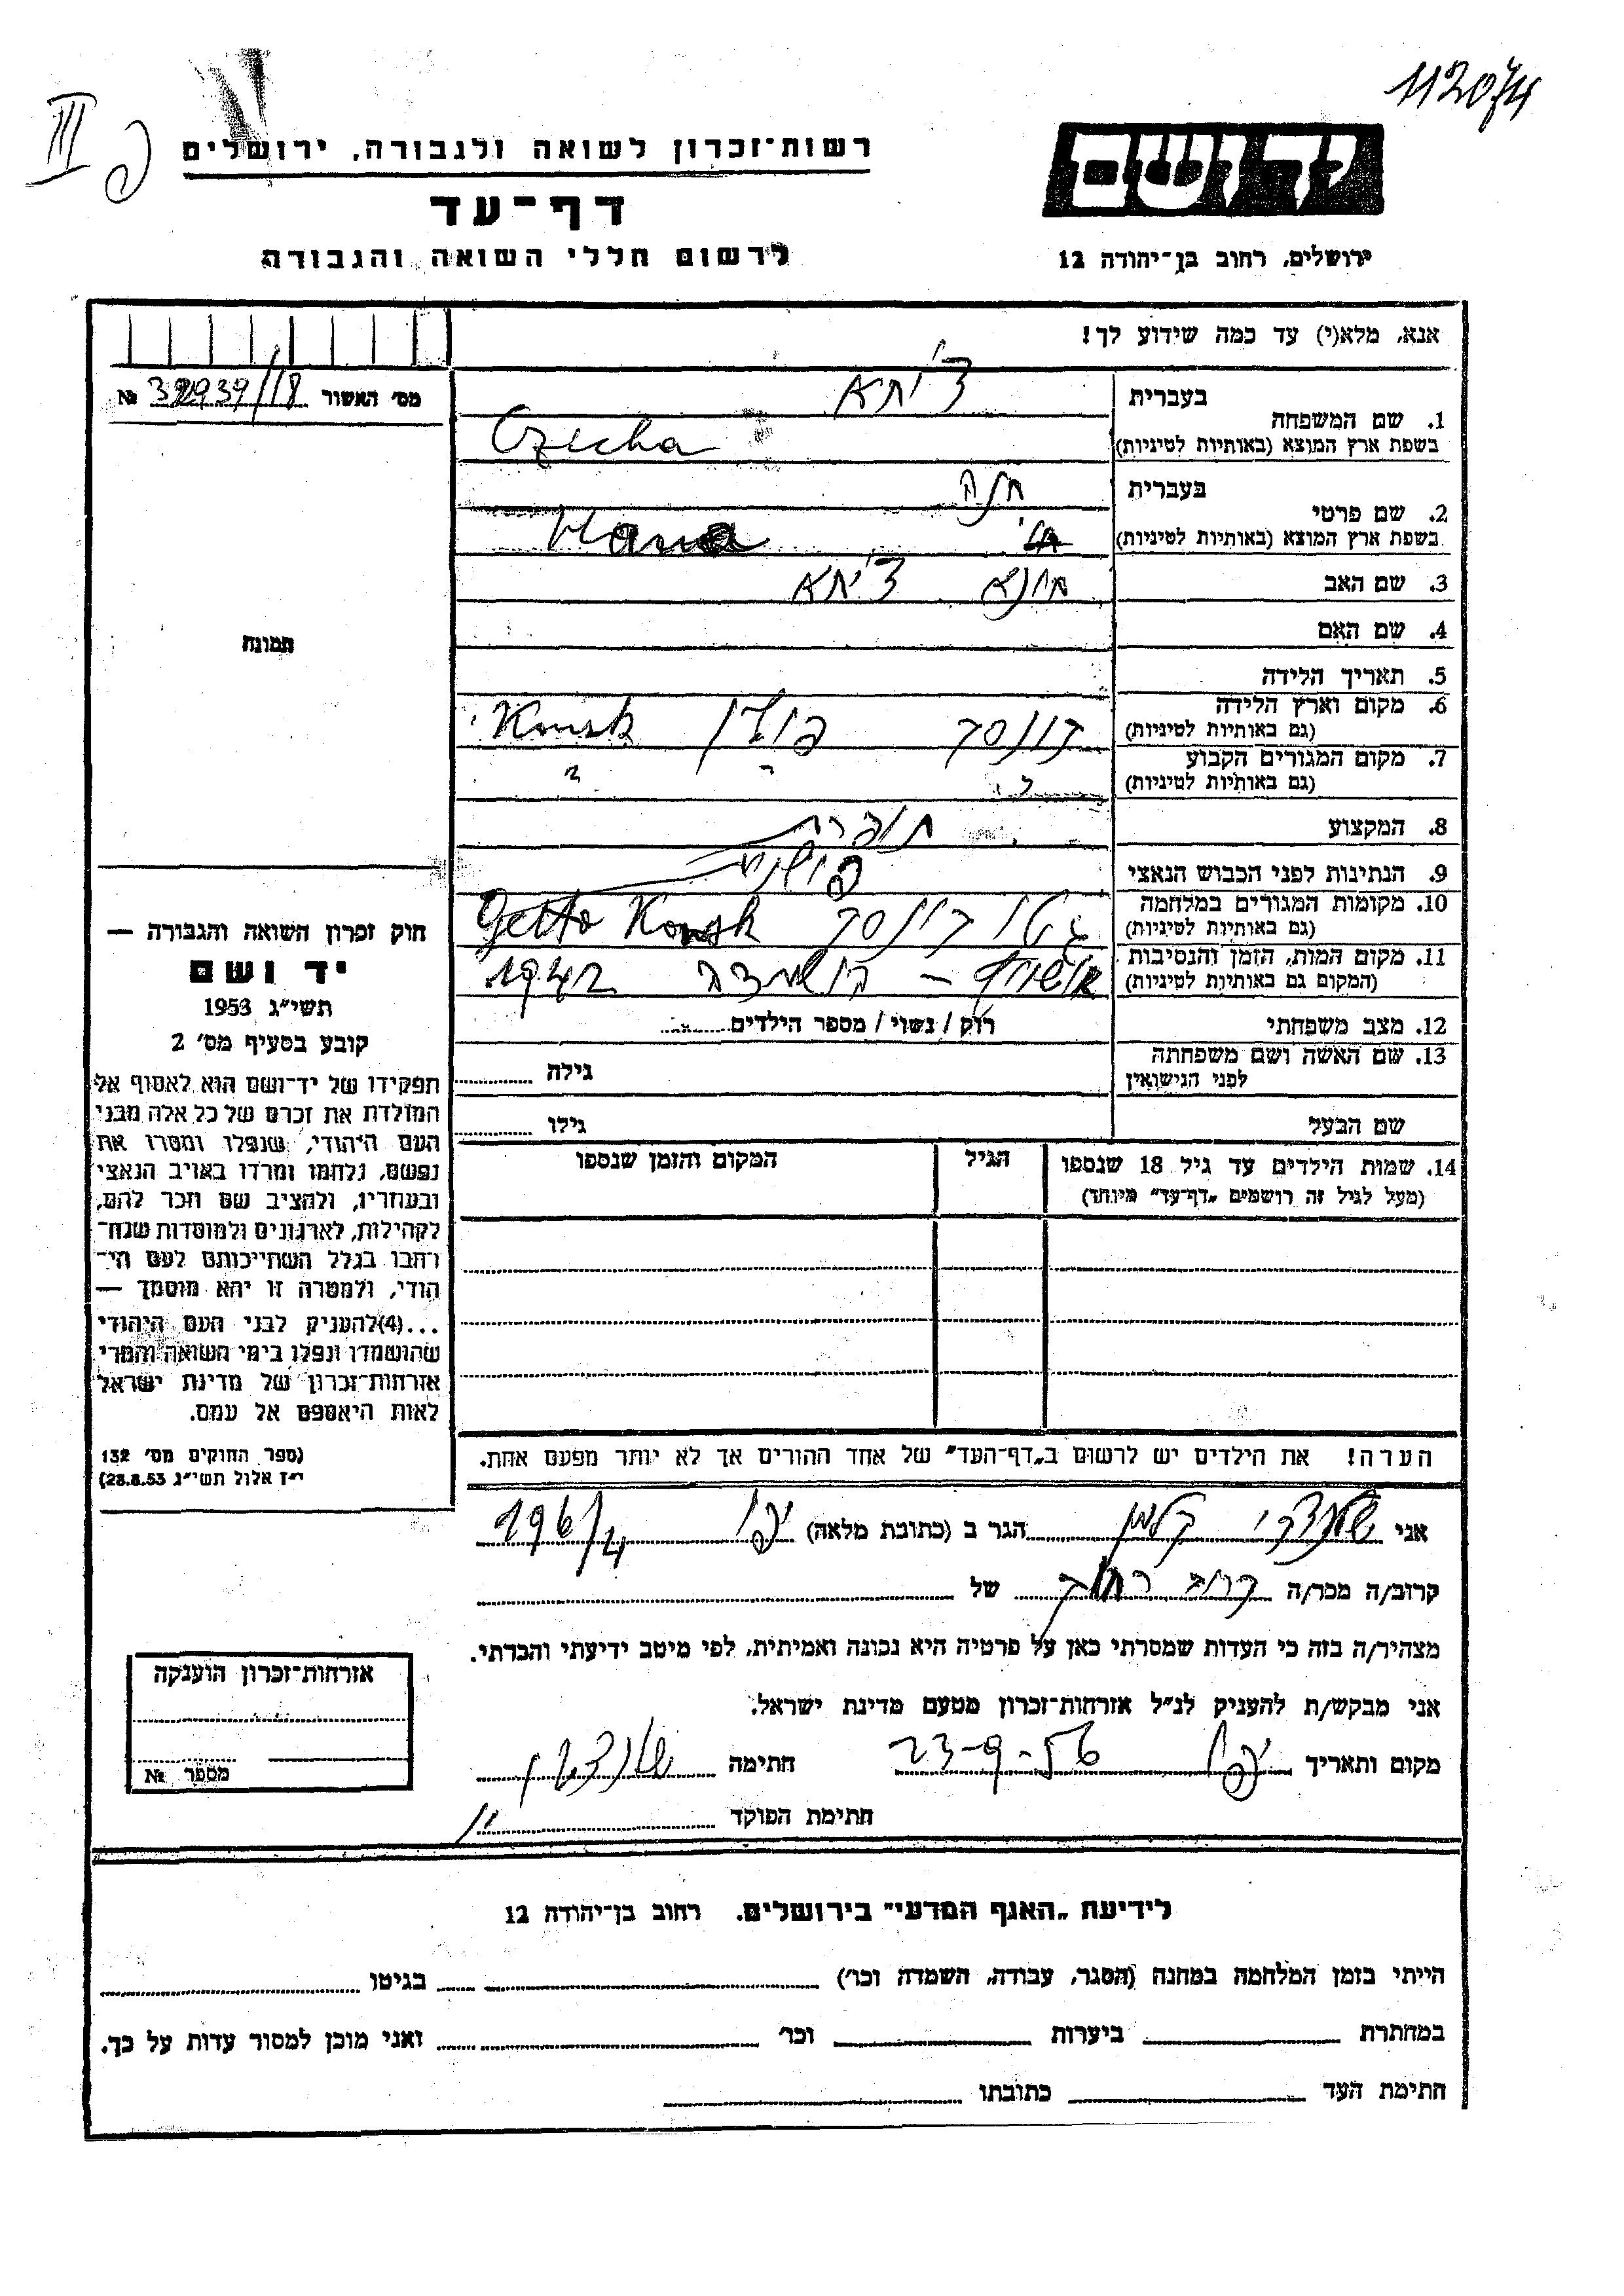 112074
III
פ
ידושם
רשות־זכרון לשואה ולגבורה, ירושלים
דף־עד
לרשום חללי השואה והגבורה
ירושלים, רחוב בן־יהודה 12
אנא, מלא(י) עד כמה שידוע לך!
מס׳ האשור 18/ №
בעברית צ'יחא
1. שם המשפחה
בשפת ארץ המוצא (באותיות לטיניות) Czecha
בעברית חנה
2. שם פרטי
בשפת ארץ המוצא (באותיות לטיניות) Hana
3. שם האב חונא צ'יחא
4. שם האם
5. תאריך הלידה
6. מקום וארץ הלידה קונסק פולין Konsk
(גם באותיות לטיניות)
7. מקום המגורים הקבוע " " "
(גם באותיות לטיניות)
8. המקצוע תופרת
9. הנתינות לפני הכבוש הנאצי פולנית
10. מקומות המגורים במלחמה גטו קונסק Getto Konsk
(גם באותיות לטיניות)
11. מקום המות, הזמן והנסיבות – הושמדה 1942
(המקום גם באותיות לטיניות)
12. מצב משפחתי רוק / נשוי / מספר הילדים
13. שם האשה ושם משפחתה גילה
לפני הנישואין
שם הבעל גילו
14. שמות הילדים עד גיל 18 שנספו הגיל המקום והזמן שנספו
(מעל לגיל זה רושמים „דף־עד" מיוחד)
הערה! את הילדים יש לרשום ב„דף־העד" של אחד ההורים אך לא יותר מפעם אחת.
תמונה
חוק זכרון השואה והגבורה —
יד ושם
תשי״ג 1953
קובע בסעיף מס׳ 2
תפקידו של יד־ושם הוא לאסוף אל
המולדת את זכרם של כל אלה מבני
העם היהודי, שנפלו ומסרו את
נפשם, נלחמו ומרדו באויב הנאצי
ובעוזריו, ולהציב שם וזכר להם,
לקהילות, לארגונים ולמוסדות שנח־
רחבו בגלל השתייכותם לעם הי־
הודי, ולמטרה זו יהא מוסמך —
...(4)להעניק לבני העם היהודי
שהושמדו ונפלו בימי השואה והמרי
אזרחות־זכרון של מדינת ישראל
לאות היאספם אל עמם.
(ספר החוקים מס׳ 132
י״ז אלול תשי״ג 28.8.53)
אני קלמן הגר ב (כתובת מלאה) יפו 196/4
קרוב/ה מכר/ה קרוב רחוק של
מצהיר/ה בזה כי העדות שמסרתי כאן על פרטיה היא נכונה ואמיתית, לפי מיטב ידיעתי והכרתי.
אני מבקש/ת להעניק לנ״ל אזרחות־זכרון מטעם מדינת ישראל.
מקום ותאריך יפו 23-9-56 חתימה
חתימת הפוקד
אזרחות־זכרון הוענקה
מספר №
לידיעת „האגף המדעי" בירושלים. רחוב בן־יהודה 12
הייתי בזמן המלחמה במחנה (הסגר, עבודה, השמדה וכו׳) בגיטו
במחתרת ביערות וכו׳ ואני מוכן למסור עדות על כך.
חתימת העד כתובתו